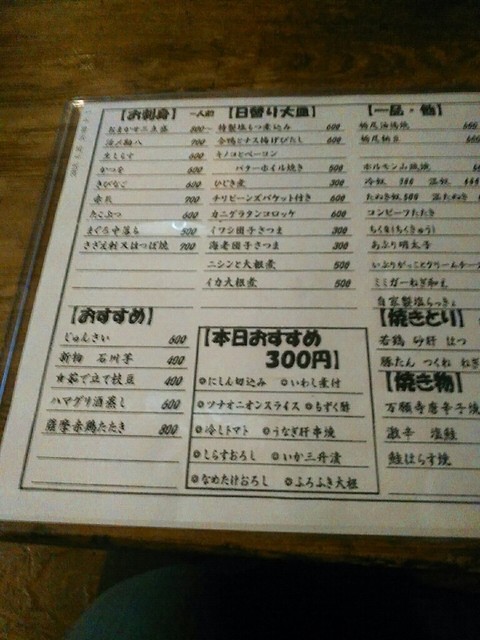 【お刺身】 一人前
おまかせ三点盛 800〜
生しらす 600
かつを 600
きびなご 600
赤貝 700
たこぶつ 600
まぐろ中落ち 500
さざえ刺又はつぼ焼 700
【日替り大皿】
特製塩もつ煮込み 600
合鴨とナス揚げびたし 600
キノコとベーコン
バターホイル焼き 500
ひじき煮 300
チリビーンズバケット付き 600
カニグラタンコロッケ 600
イワシ団子さつま 300
海老団子さつま 300
ニシンと大根煮 500
イカ大根煮 500
【一品・他】
栃尾油揚焼
栃尾納豆
ホルモン山賊焼
冷奴
コンビーフたたき
ちくきゅう
あぶり明太子
いぶりがっことクリームチーズ
ミミガーねぎ和え
自家製塩らっきょ
【おすすめ】
じゅんさい 600
新物 石川芋 400
★茹で立て枝豆 400
ハマグリ酒蒸し 600
薩摩赤鶏たたき 800
【本日おすすめ
300円】
にしん切込み いわし煮付
ツナオニオンスライス もずく酢
冷しトマト うなぎ肝串焼
しらすおろし いか三升漬
なめたけおろし ふろふき大根
【焼きとり】
若鶏 砂肝 はつ
豚たん つくね ねぎ
【焼き物】
万願寺唐辛子焼
激辛 塩鮭
鮭はらす焼